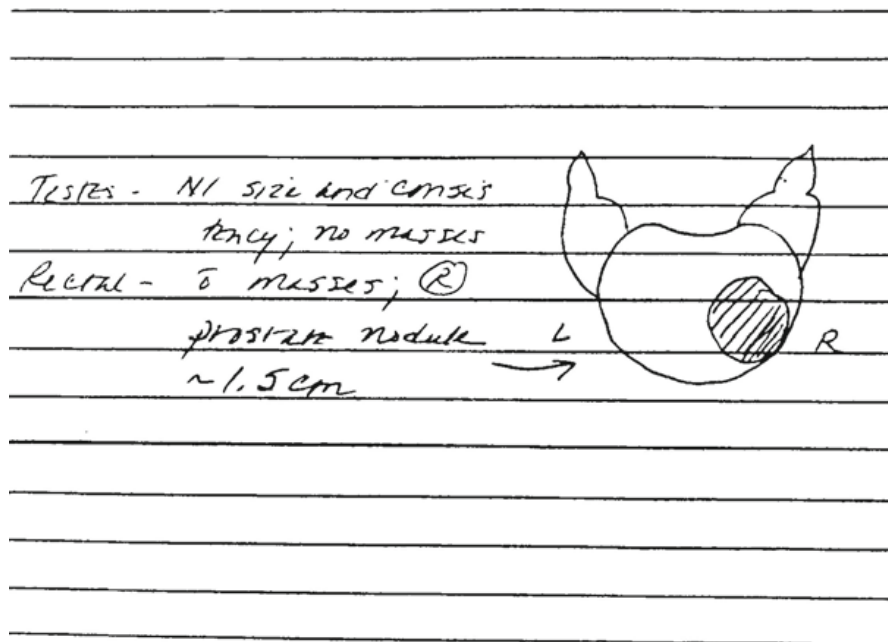 Testes - Nl size and consis
tency; no masses
Rectal - ō masses; Ⓡ
prostate nodule
~1.5cm
L
R